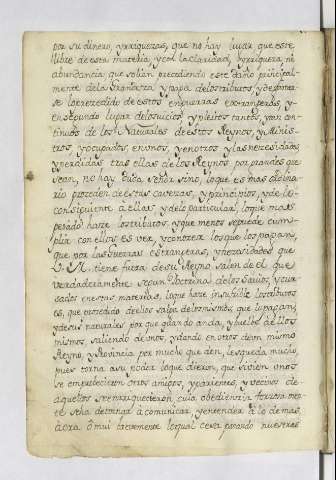 por su dinero, y riquezas, que no hay lugar que este
libre de esta materia, y con la claridad, y riqueza ni
abundancia que solian, procediendo este daño principal-
mente de la ganancia, y paga de los tributos, y de poner-
se lo procedido de estos en guerras extrangeras, y
en segundo lugar de los vicios, y pleitos tantos, y tan con-
tinuos de los Naturales de estos Reynos, y Minis-
tros, y ocupados, en unos, y en otros y las necesidades
y perdidas tras ellas de los Reynos, por grandes que
sean, no hay duda Señor sino, que es mas de ordina-
rio proceden de estas causas, y principios, y de lo
consiguiente à ellas, y de lo particular, lo que mas
pesado hace los tributos, y que menos se puede cum-
plir con ellos es ver, y conocer los que los pagan,
que por las guerras extrangeras, y necesidades que
V. M. tiene fuera de su Reyno salen de el que
verdaderamente segun Doctrina de los Savios, y cur-
sados en estas materias, lo que hace insufrible los tributos
es, que procedido de ellos salga de los mismos, que lo pagan,
y de sus naturales por que quando anda, y buelve a ellos
mismos, saliendo de unos, y dando en otros de un mismo
Reyno, y Provincia por mucho que den, les queda mucho,
pues torna a su poder lo que dieron, que si bien unos
se empobrecieron otros amigos, y parientes, y vecinos de
aquellos se enriquecieron, cuia obediencia forzosamen-
te se ha de tornar à comunicar, y entender à lo demas,
acra ò mui brevemente lo qual cesa pasando nuestras